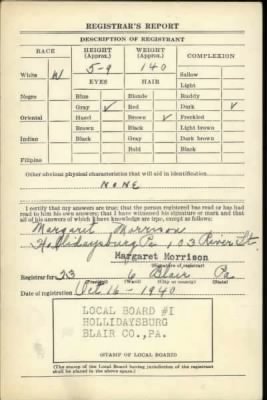 REGISTRAR'S REPORT
DESCRIPTION OF REGISTRANT
RACE HEIGHT (Approx.) WEIGHT (Approx.) COMPLEXION
White W 5-9 140 Sallow
EYES HAIR Light
Negro Blue Blonde Ruddy
Gray ✓ Red Dark ✓
Oriental Hazel Brown ✓ Freckled
Brown Black Light brown
Indian Black Gray Dark brown
Bald Black
Filipino
Other obvious physical characteristics that will aid in identification
NONE
I certify that my answers are true; that the person registered has read or has had
read to him his own answers; that I have witnessed his signature or mark and that
all of his answers of which I have knowledge are true, except as follows:
Margaret Morrison
Hollidaysburg Pa., 103 River St.
Margaret Morrison
(Signature of registrar)
Registrar for 23 6 Blair Pa.
(Precinct) (Ward) (City or county) (State)
Date of registration Oct 16 - 1940
LOCAL BOARD #1
HOLLIDAYSBURG
BLAIR CO., PA.
(STAMP OF LOCAL BOARD)
(The stamp of the Local Board having jurisdiction of the registrant
shall be placed in the above space.)